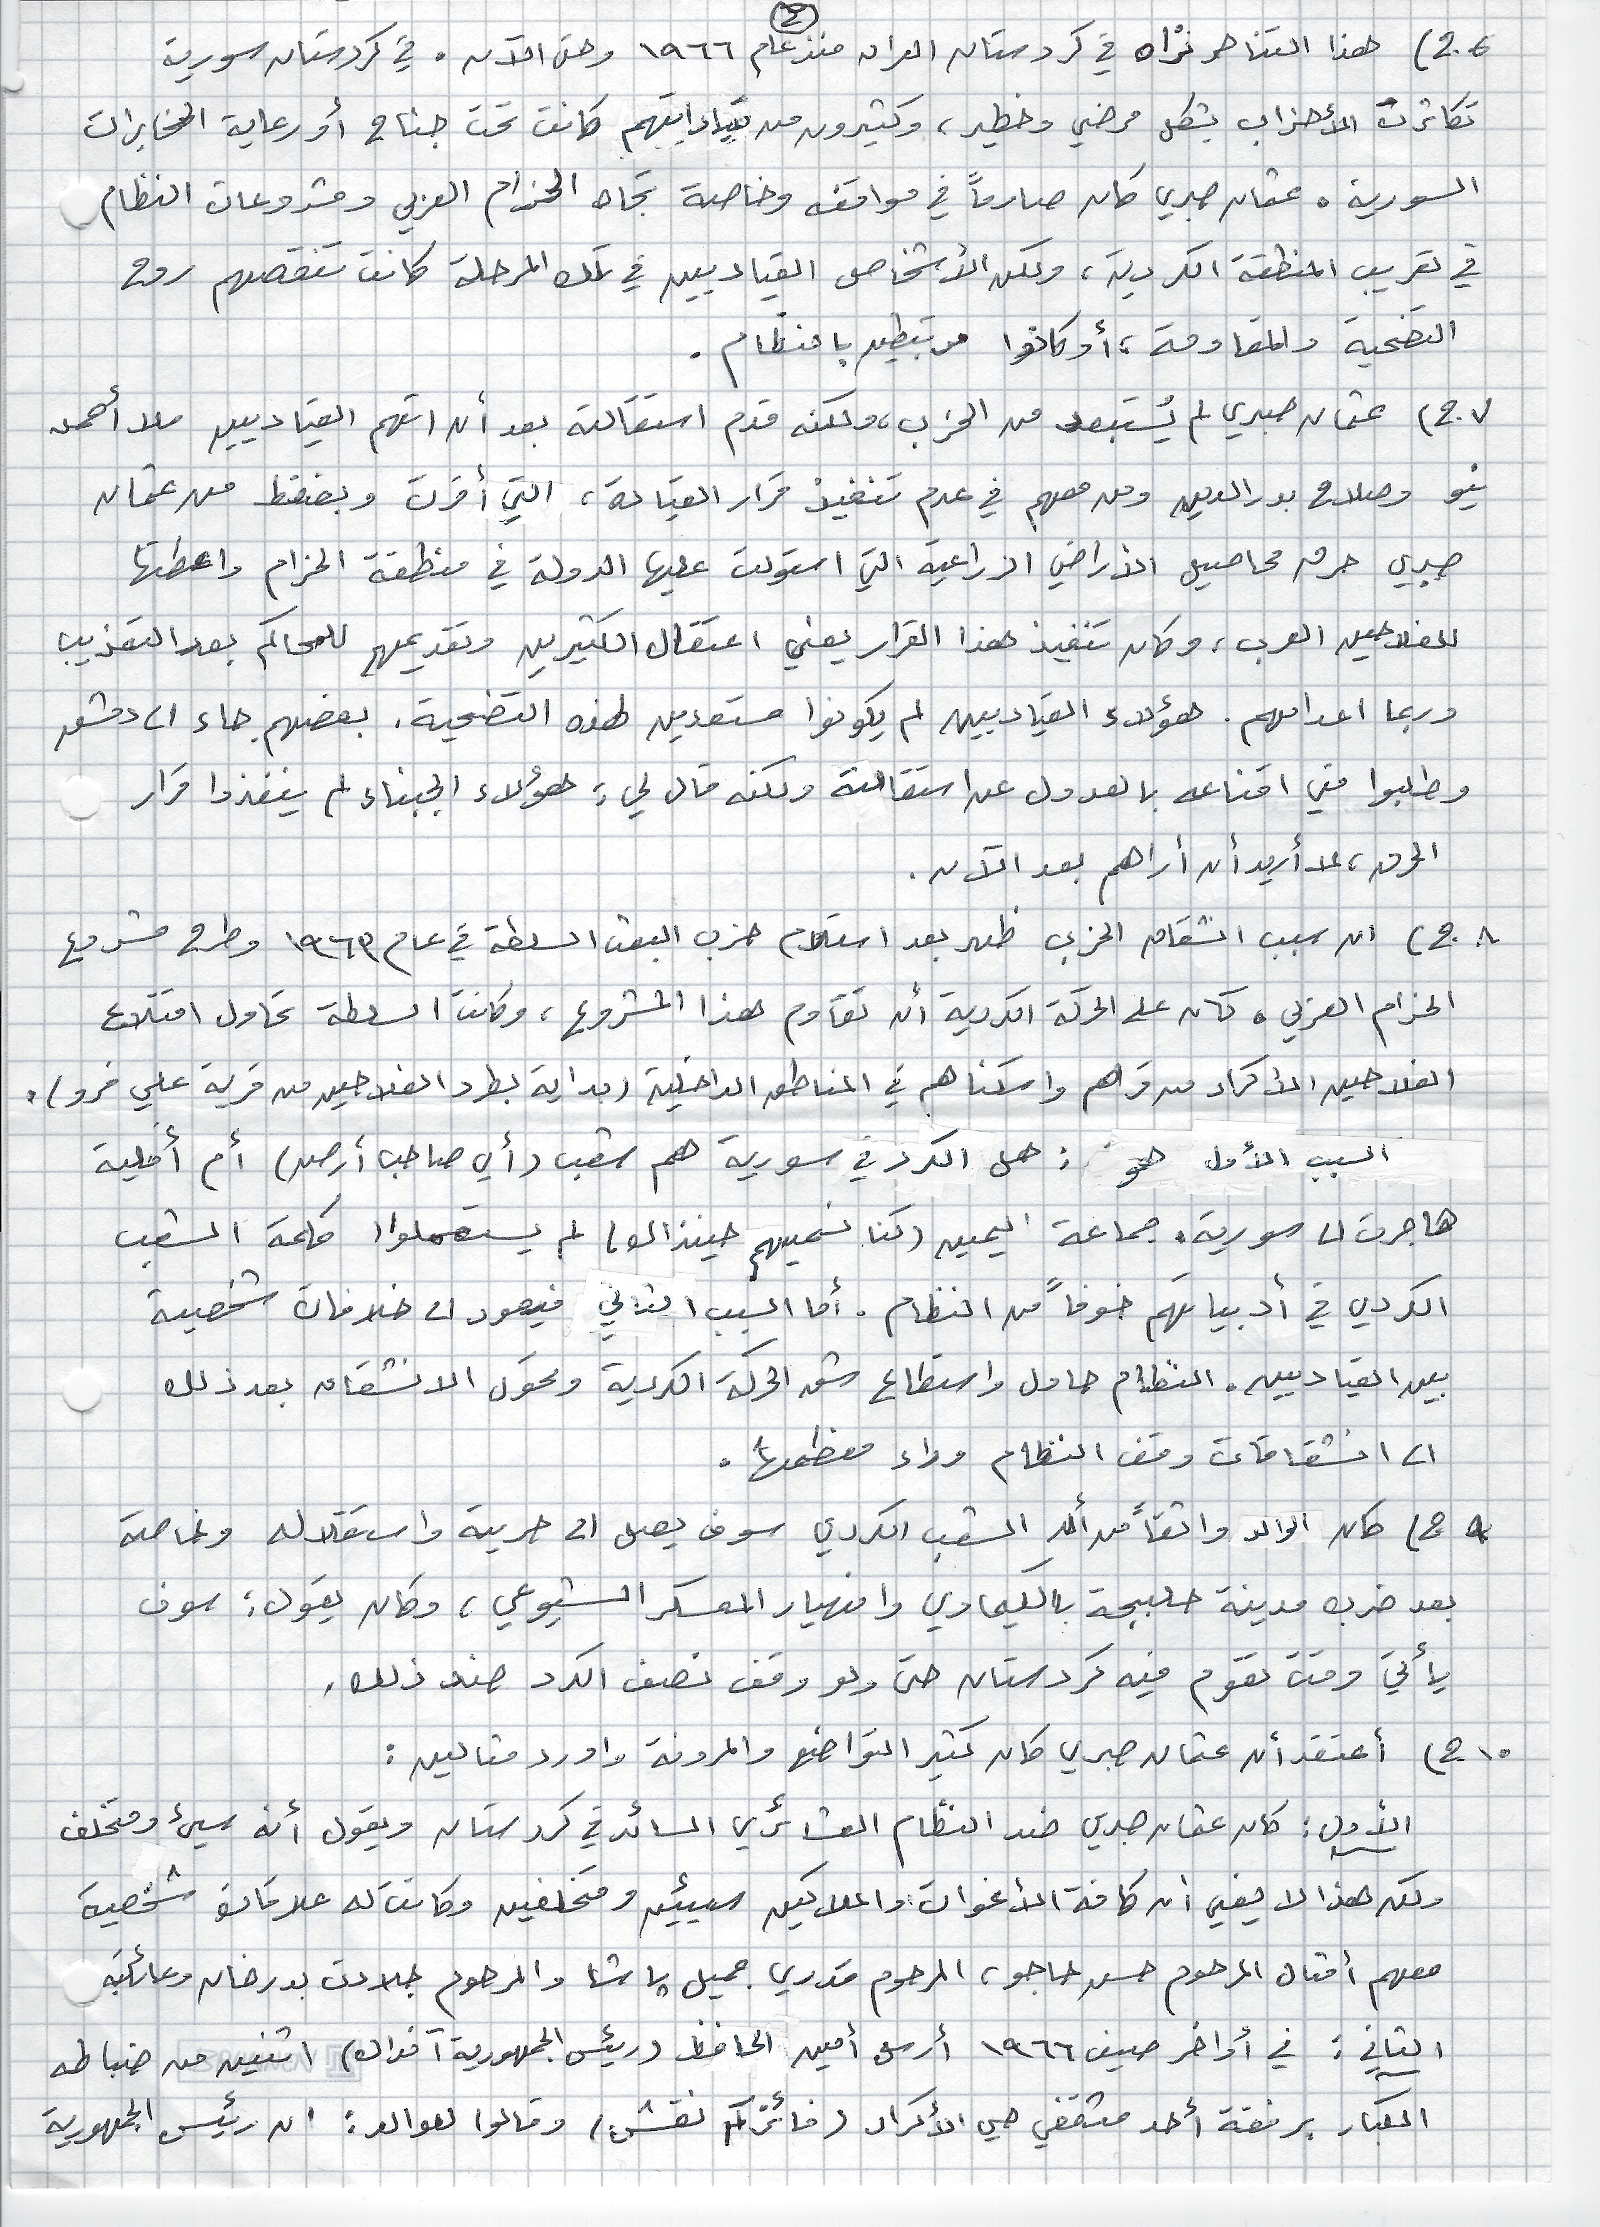 ٤
٦.ج) هذا التناحر نراه في كردستان العراق منذ عام ١٩٦٦ وحتى الآن. في كردستان سورية
تكاثرت الأحزاب بشكل مرضي وخطير، وكثيرون من قياداتهم كانت تحت جناح أو رعاية المخابرات
السورية. عثمان صبري كان صارماً في مواقفه وخاصة تجاه الحزام العربي ومشروعات النظام
في تعريب المنطقة الكردية، ولكن الأشخاص القياديين في تلك المرحلة كانت تنقصهم روح
التضحية والمقاومة، أو كانوا مرتبطين بالنظام.
٧.ج) عثمان صبري لم يُستبعد من الحزب، ولكنه قدم استقالته بعد أن اتهم القياديين ملا أحمد
نيو وصلاح بدرالدين ومن معهم في عدم تنفيذ قرار القيادة، التي أقرت وبضغط من عثمان
صبري حرق محاصيل الأراضي الزراعية التي استولت عليها الدولة في منطقة الحزام واعطتها
للفلاحين العرب، وكان تنفيذ هذا القرار يعني اعتقال الكثيرين وتقديمهم للمحاكم بعد التعذيب
وربما اعدامهم. هؤلاء القياديين لم يكونوا مستعدين لهذه التضحية. بعضهم جاء الى دمشق
وطلبوا مني اقناعه بالعدول عن استقالته ولكنه قال لي: هؤلاء الجبناء لم ينفذوا قرار
الحرق، لا أريد أن أراهم بعد الآن.
٨.ج) ان سبب انشقاق الحزب ظهر بعد استلام حزب البعث السلطة في عام ١٩٦٣ وطرح مشروع
الحزام العربي. كان على الحركة الكردية أن تقاوم هذا المشروع، وكانت السلطة تحاول اقتلاع
الفلاحين الأكراد من قراهم واسكناهم في المناطق الداخلية (بداية بطرد الفلاحين من قرية علي فرو).
السبب الأول هو: هل الكرد في سورية هم شعب (أي صاحب أرض) أم أقلية
هاجرت الى سورية. جماعة اليمين (كنا نسميهم حينذاك) لم يستعملوا كلمة الشعب
الكردي في أدبياتهم خوفاً من النظام. أما السبب الثاني فيعود الى خلافات شخصية
بين القياديين. النظام حاول واستطاع شق الحركة الكردية وتحول الانشقاق بعد ذلك
الى انشقاقات وقف النظام وراء معظمها.
٩ ج) كان الوالد واثقاً من أن الشعب الكردي سوف يصل الى حريته واستقلاله وخاصة
بعد ضرب مدينة حلبجة بالكيماوي وانهيار المعسكر الشيوعي، وكان يقول: سوف
يأتي وقت تقوم فيه كردستان حتى ولو وقف نصف الكرد ضد ذلك.
١٠.ج) أعتقد أن عثمان صبري كان كثير التواضع والمرونة واورد مثالين:
الأول: كان عثمان صبري ضد النظام العشائري السائد في كردستان ويقول أنه سيئ ومتخلف
ولكن هذا لا يعني ان كافة الأغوات والملاكين سيئين ومتخلفين وكانت له علاقات شخصية
معهم أمثال المرحوم حسن حاجو، المرحوم قدري جميل پاشا والمرحوم جلادت بدرخان وعائلته
الثاني: في أواخر صيف ١٩٦٦ أرسل أمين الحافظ (رئيس الجمهورية آنذاك) اثنين من ضباطه
الكبار برفقة أحد مثقفي حي الأكراد وقالوا للوالد: ان رئيس الجمهورية